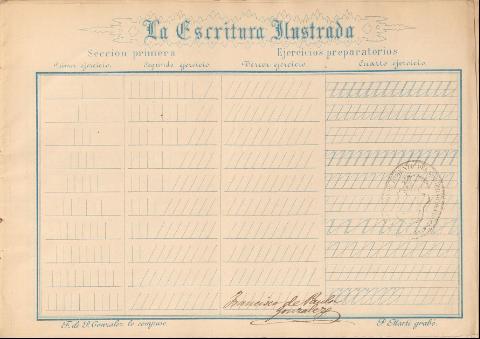 La Escritura Ilustrada
Sección primera Ejercicios preparatorios
Primer ejercicio. Segundo ejercicio Tercer ejercicio Cuarto ejercicio.
Francisco de Paula
Gonzalez
F. de P. Gonzalez lo compuso. P. Martí grabó.